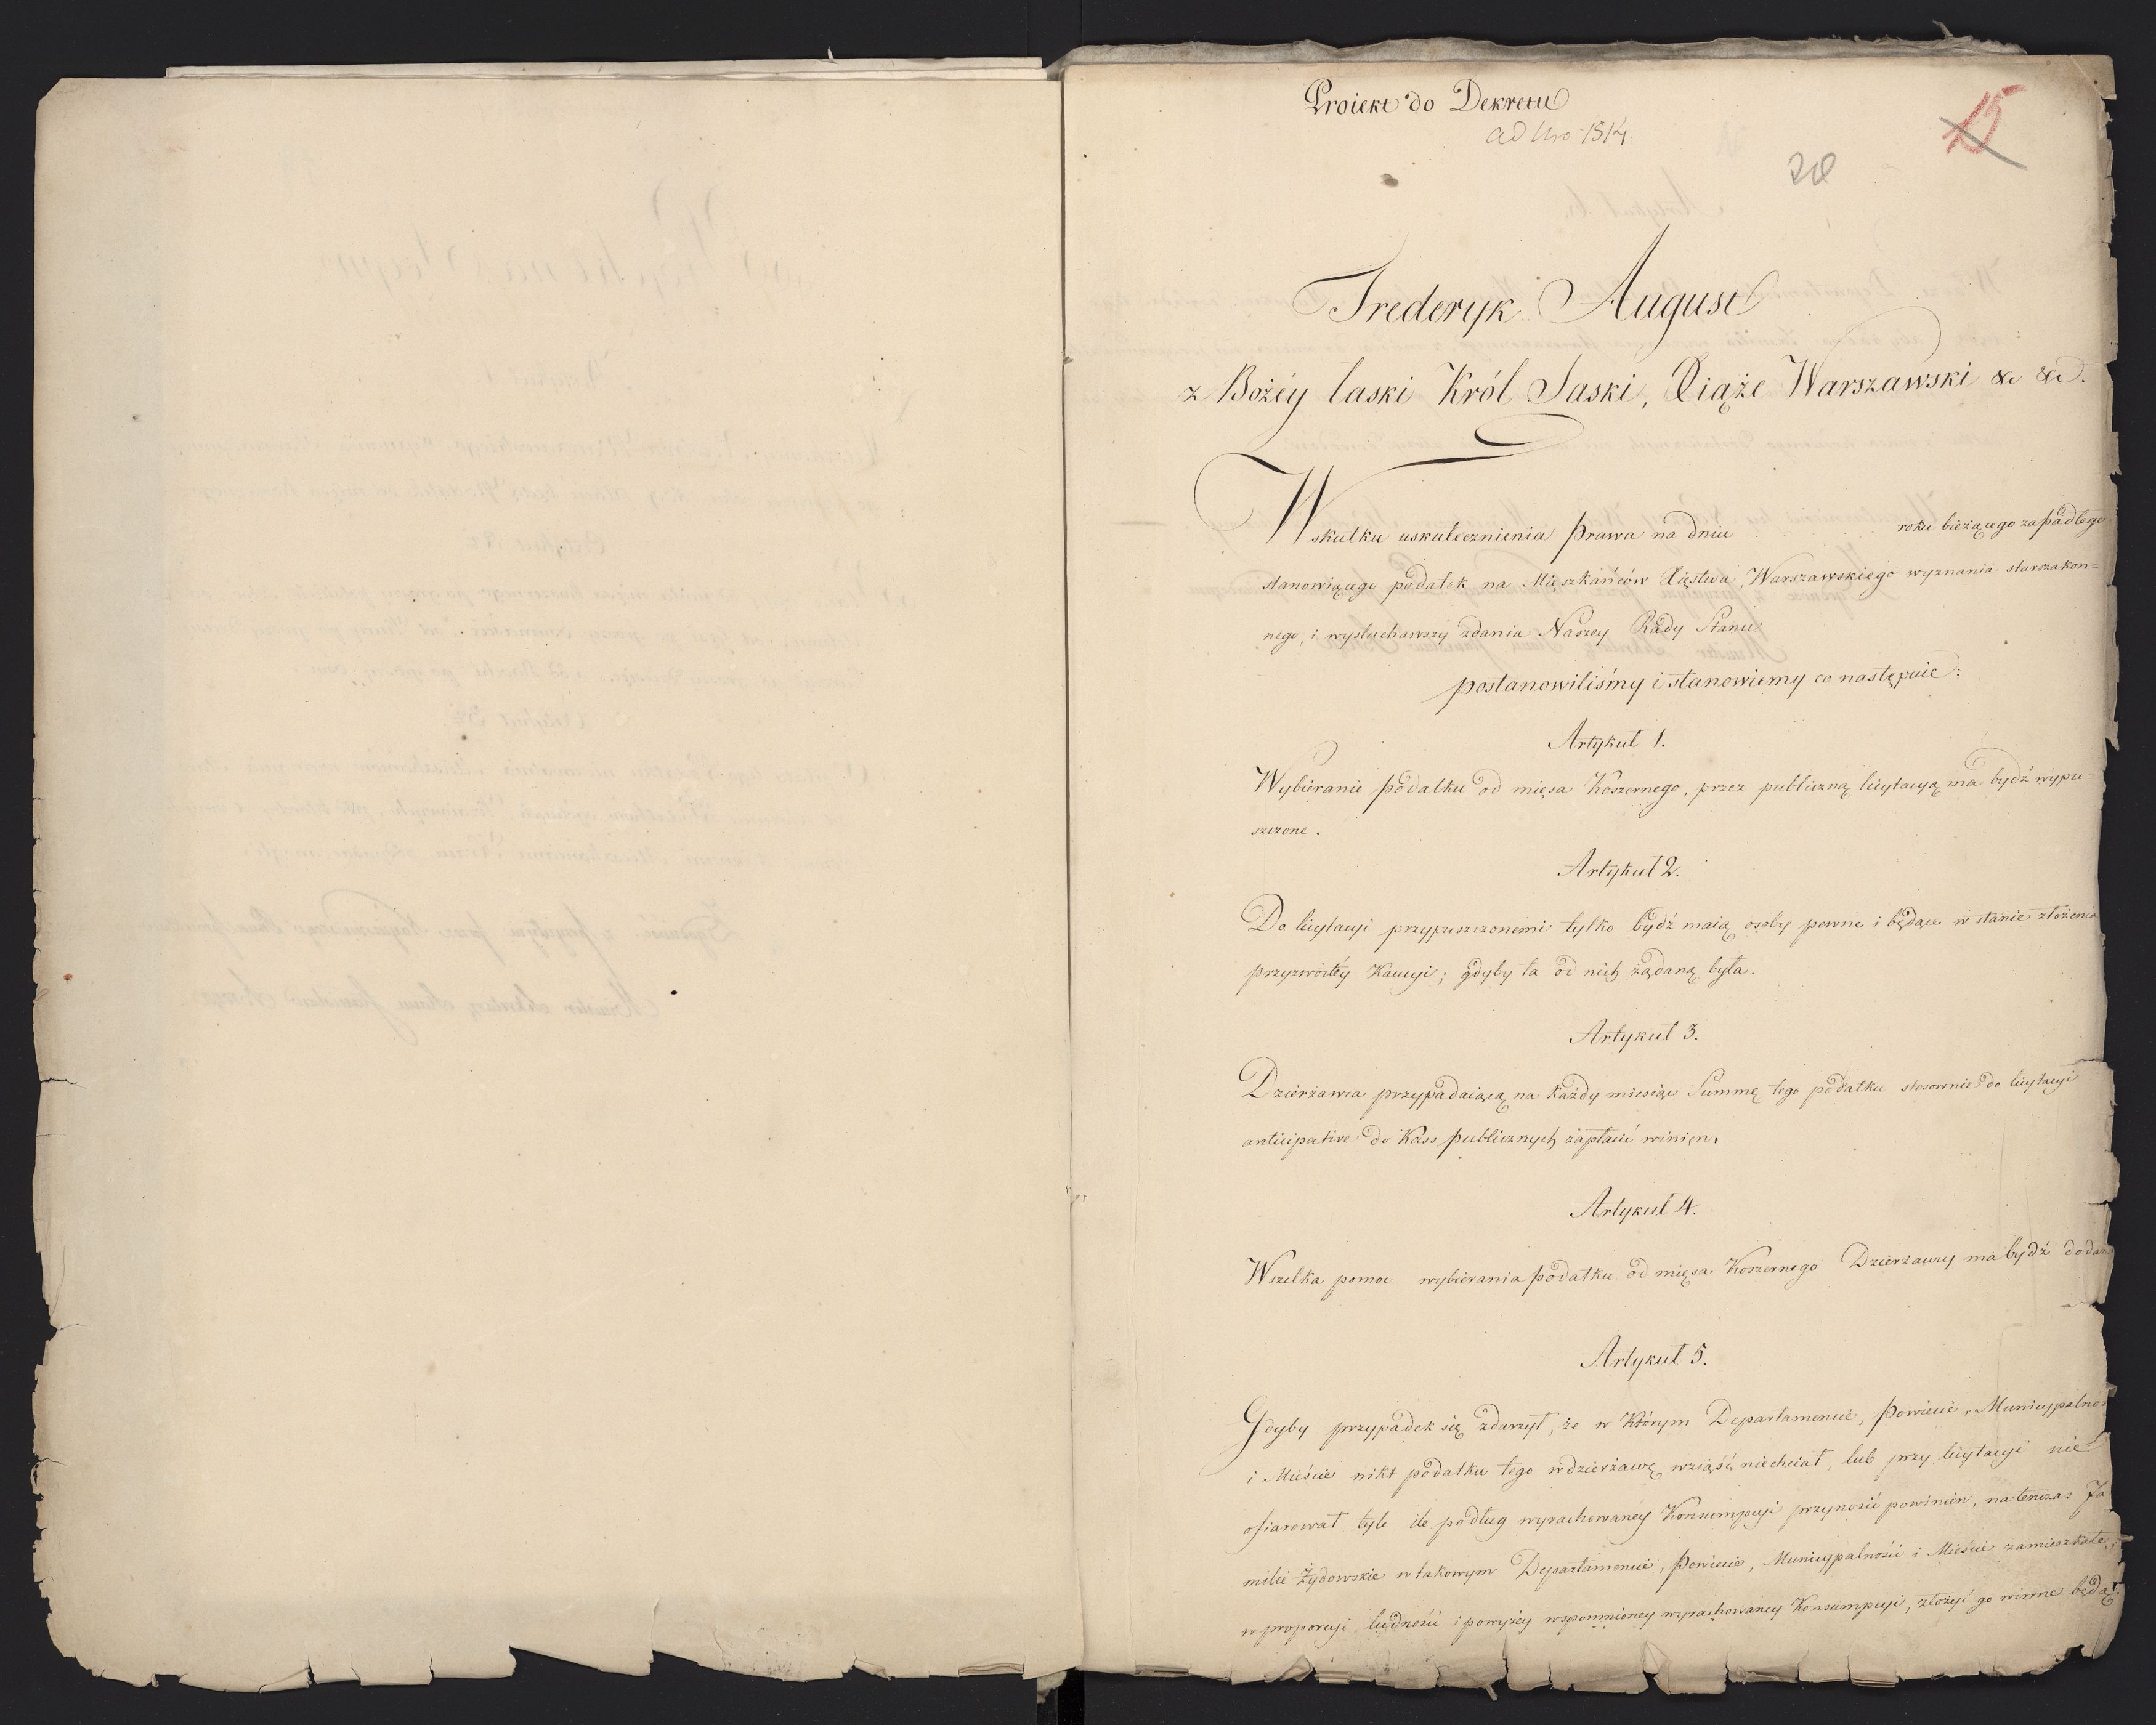 Proiekt do Dekretu
ad Nro 1514
15
20
Frederyk August
z Bożéy łaski Król Saski, Xiąże Warszawski &c &c.
W skutku uskutecznienia prawa na dniu roku bieżącego zapadłego
stanowiącego podatek na Mieszkańców Xięstwa Warszawskiego wyznania starozakon=
nego, i wysłuchawszy zdania Naszey Rady Stanu
postanowiliśmy i stanowiemy co następuie:
Artykuł 1.
Wybieranie podatku od mięsa Koszernego, przez publiczną licytacyą ma bydź wypu=
szczone.
Artykuł 2.
Do licytacyi przypuszczonemi tylko bydź maią osoby pewne i będące w stanie złożenia
przyzwoitéy Kaucyi; gdyby ta od nich żądaną była.
Artykuł 3.
Dzierżawca przypadaiącą na każdy miesiąc Summę tego podatku stosownie do licytacyi
anticipative do Kass publicznych zapłacić winien.
Artykuł 4.
Wszelka pomoc wybierania podatku od mięsa Koszernego Dzierżawcy ma bydź
Artykuł 5.
Gdyby przypadek się zdarzył, że w którym Departamencie, Powiecie,
i Mieście nikt podatku tego w dzierżawę wziąść niechciał, lub przy licytacyi nie
ofiarował tyle ile podług wyrachowanéy Konsumpcyi przynosić powinien, na tenczas Fa
milie Żydowskie w takowym Departamencie, Powiecie, Municypalności i Mieście zamieszkałe,
w proporcyi ludności i powyżey wspomnioney wyrachowaney Konsumpcyi, złożyć go winne będą.